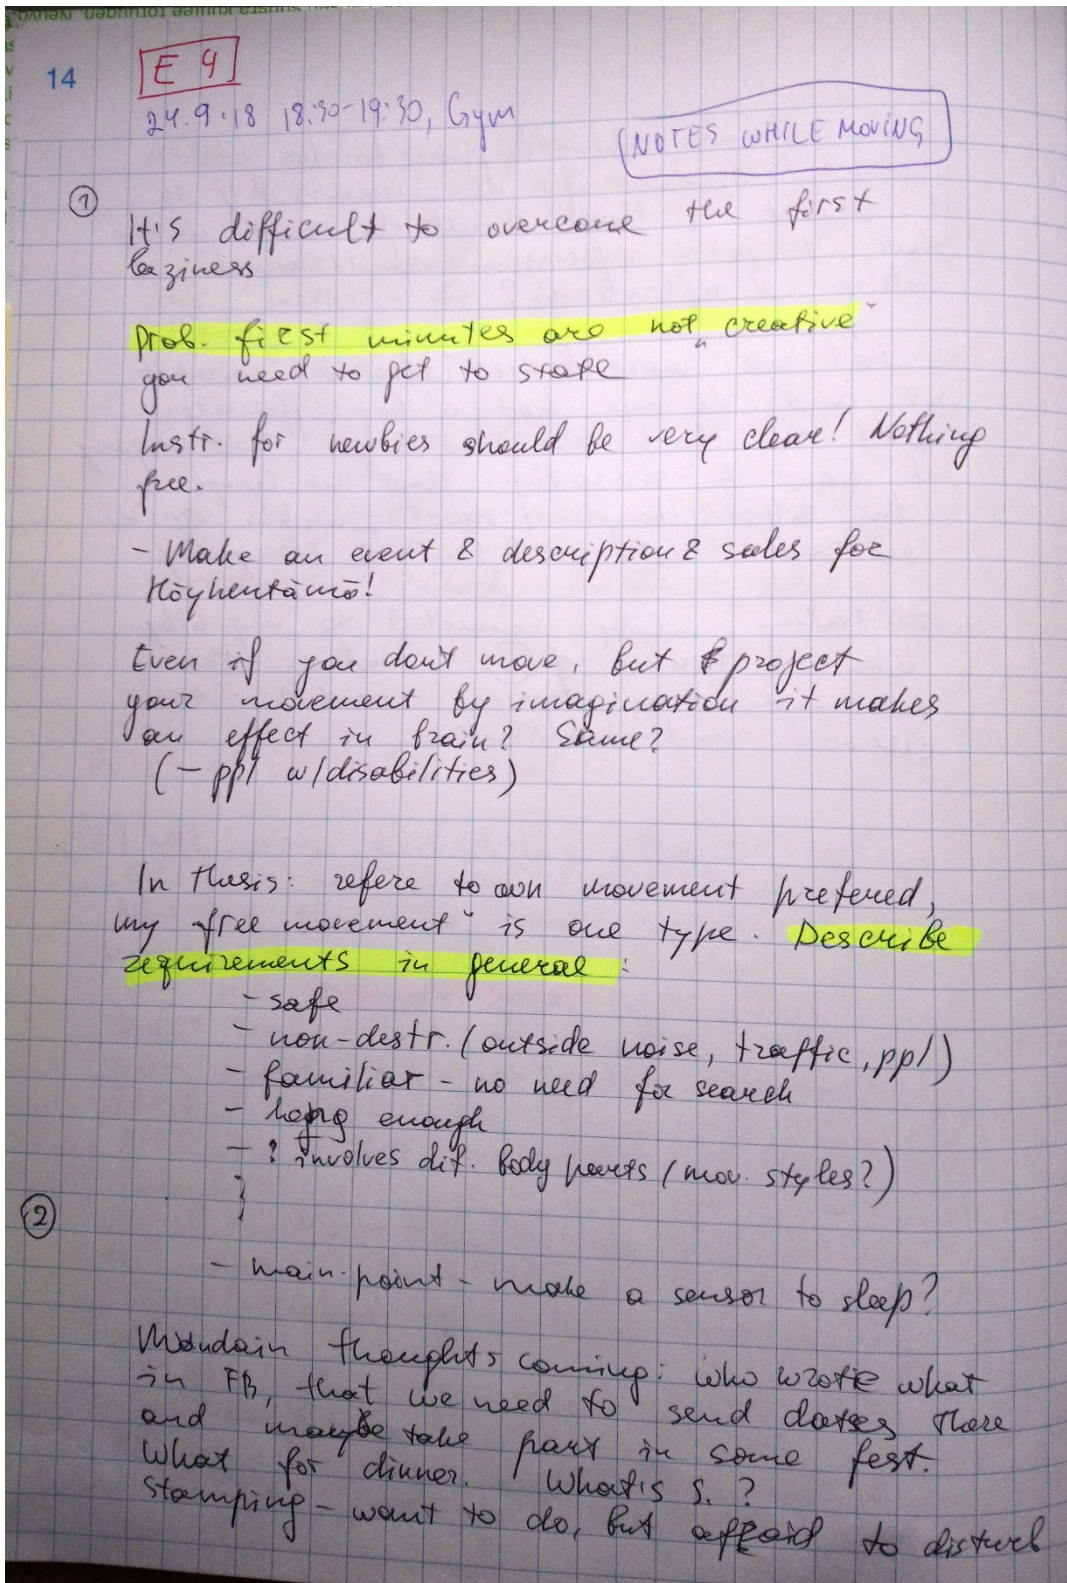 14
E 4
24.9.18 18:30-19:30, Gym
NOTES WHILE MOVING
1
It's difficult to overcome the first
laziness
Prob. first minutes are not „creative“
you need to get to state
Instr. for newbies should be very clear! Nothing
free.
- Make an event & description & sales for
Höyhentämö!
Even if you don't move, but project
your movement by imagination it makes
an effect in brain? Same?
(- ppl w/disabilities)
In thesis: refere to own movement prefered,
my „free movement“ is one type. Describe
requirements in general:
- safe
- non-destr. (outside noise, traffic, ppl)
- familiar - no need for search
- long enough
- ? involves dif. body parts (mov. styles?)
2
- main point - make a sensor to sleep?
Mundain thoughts coming: who wrote what
in FB, that we need to send dates there
and maybe take part in some fest.
What for dinner. What is S. ?
Stamping - want to do, but affraid to disturb